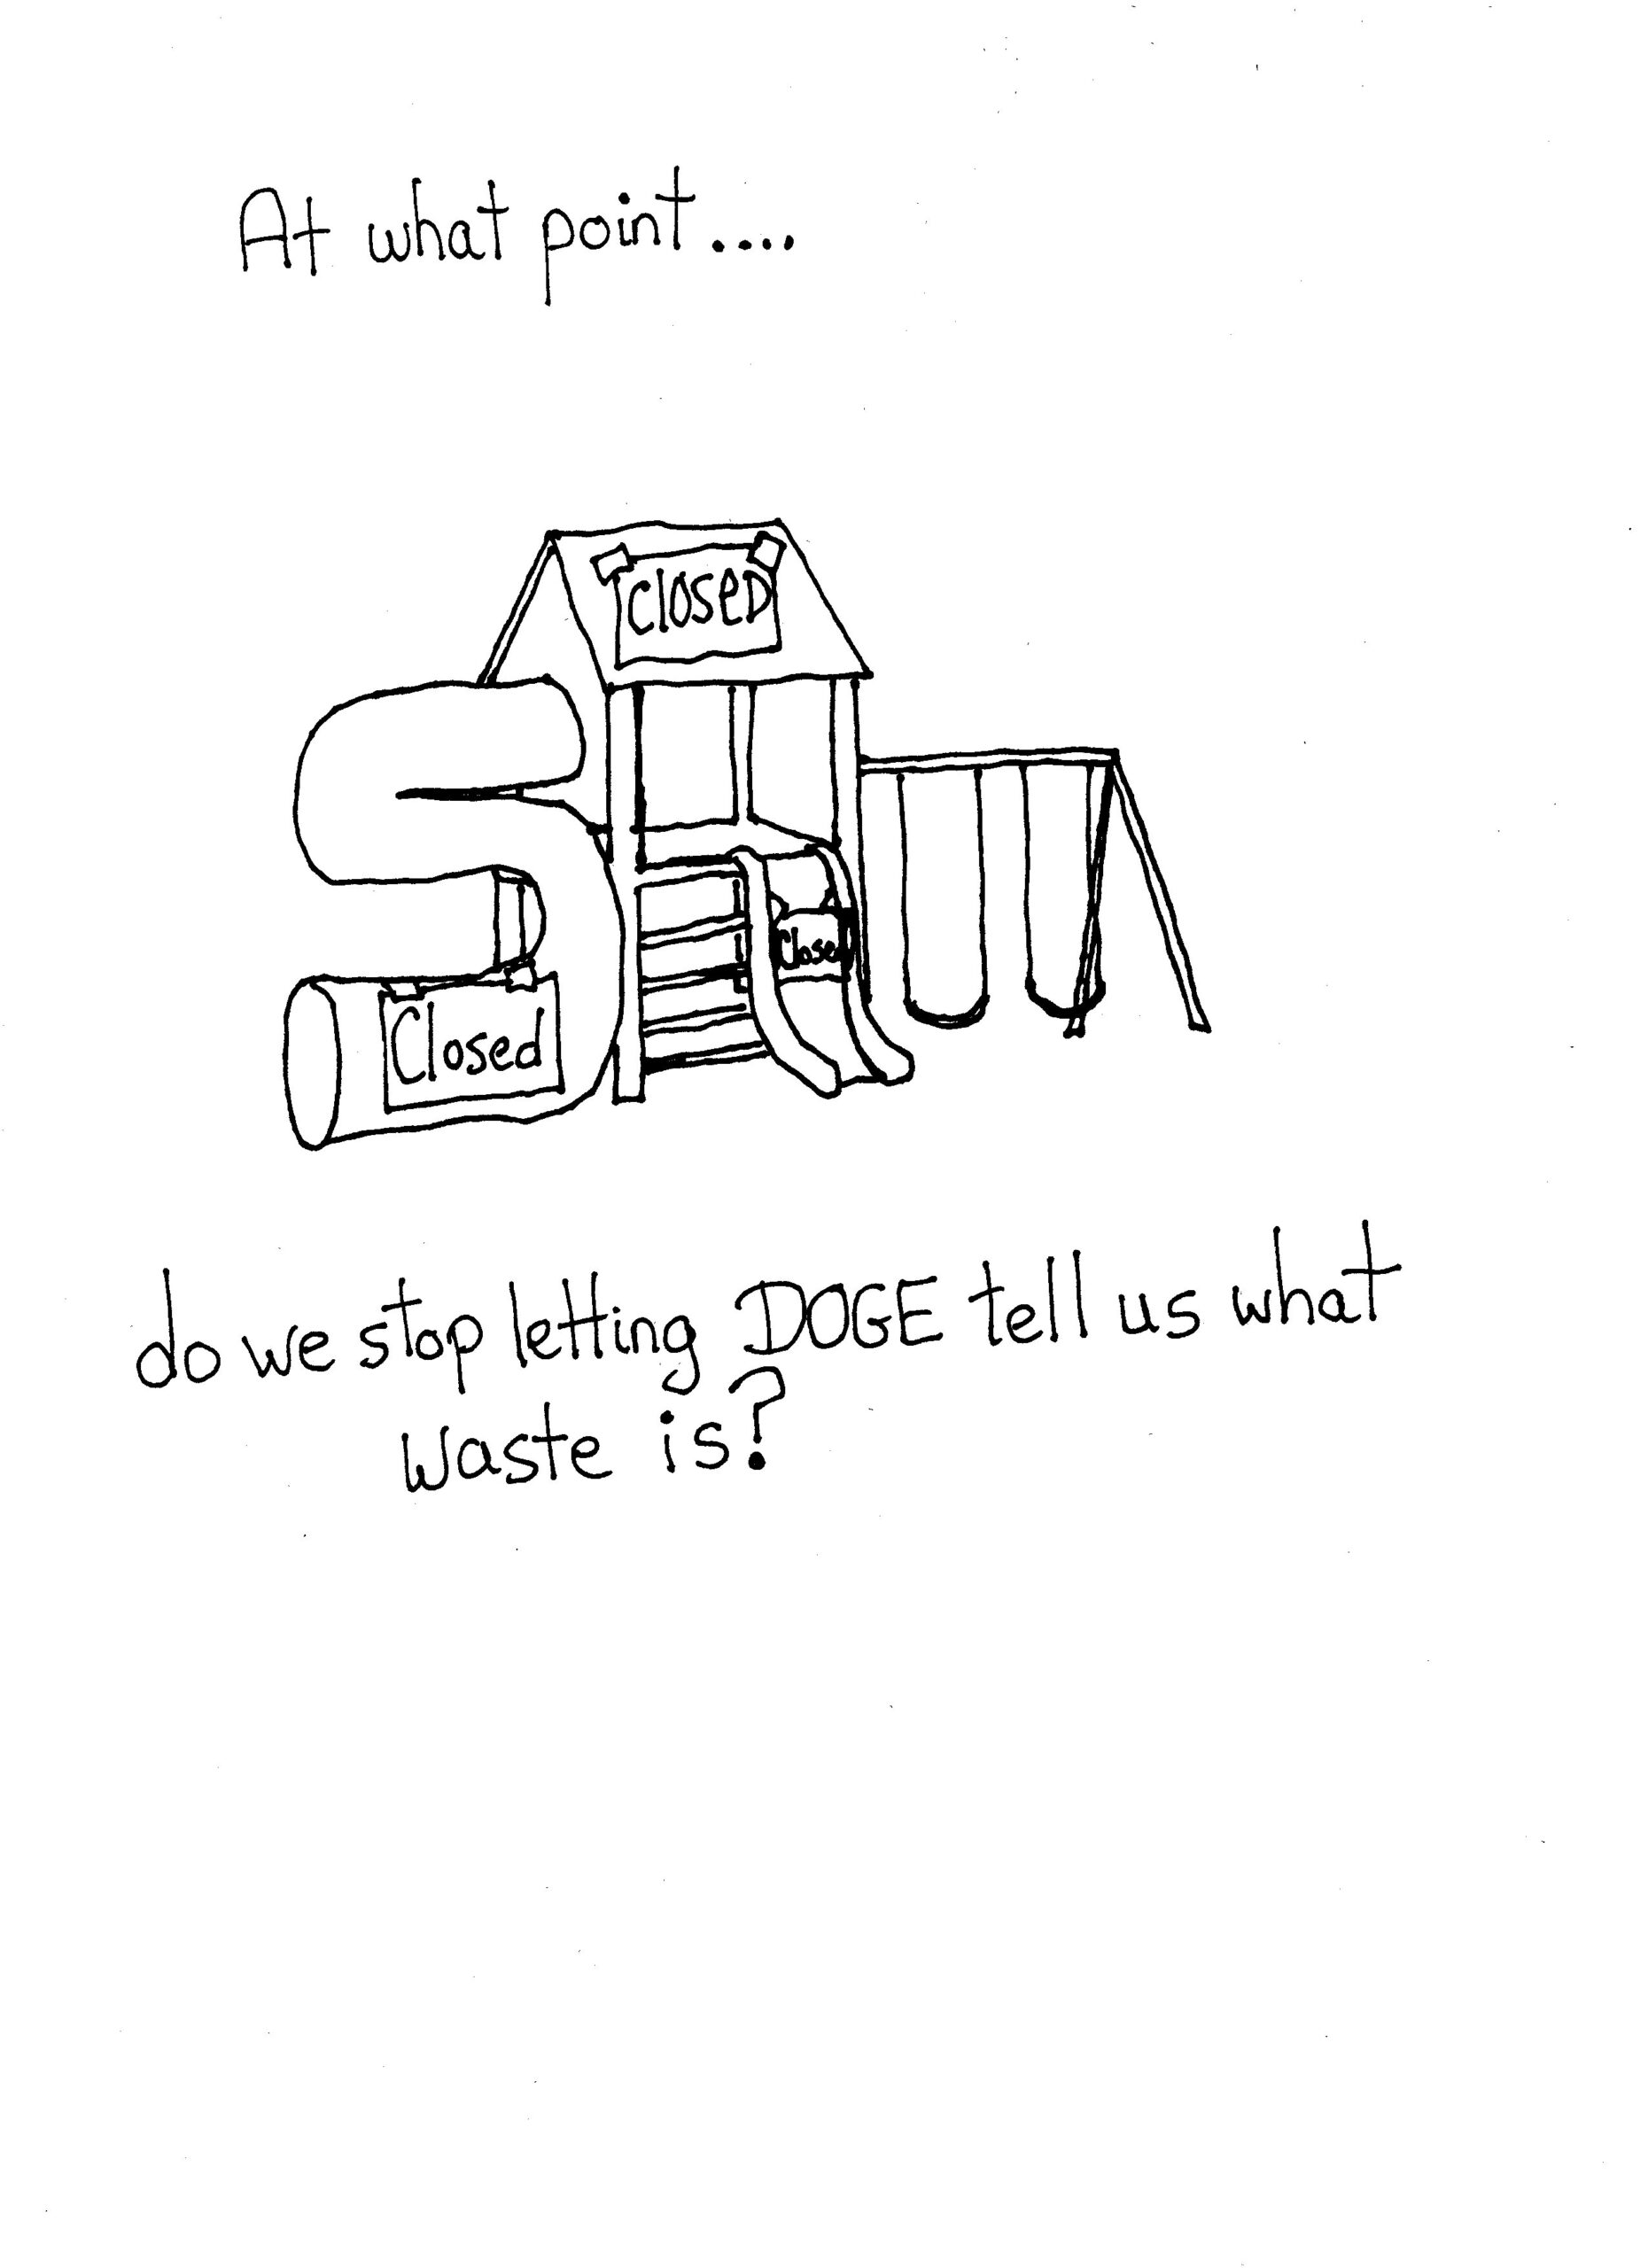 At what point....
CLOSED
Closed
Closed
do we stop letting DOGE tell us what
waste is?